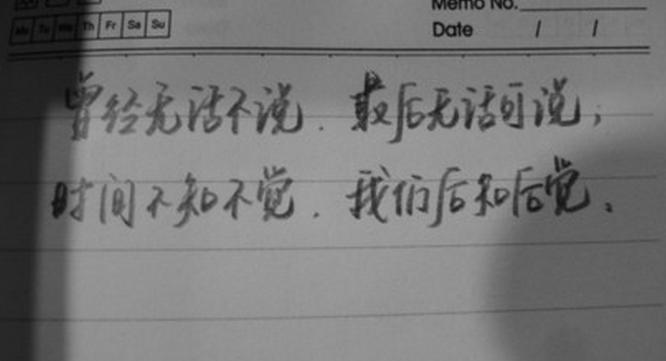 Memo No.
Mo Tu We Th Fr Sa Su
Date / /
曾经无话不说.最后无话可说;
时间不知不觉.我们后知后觉.